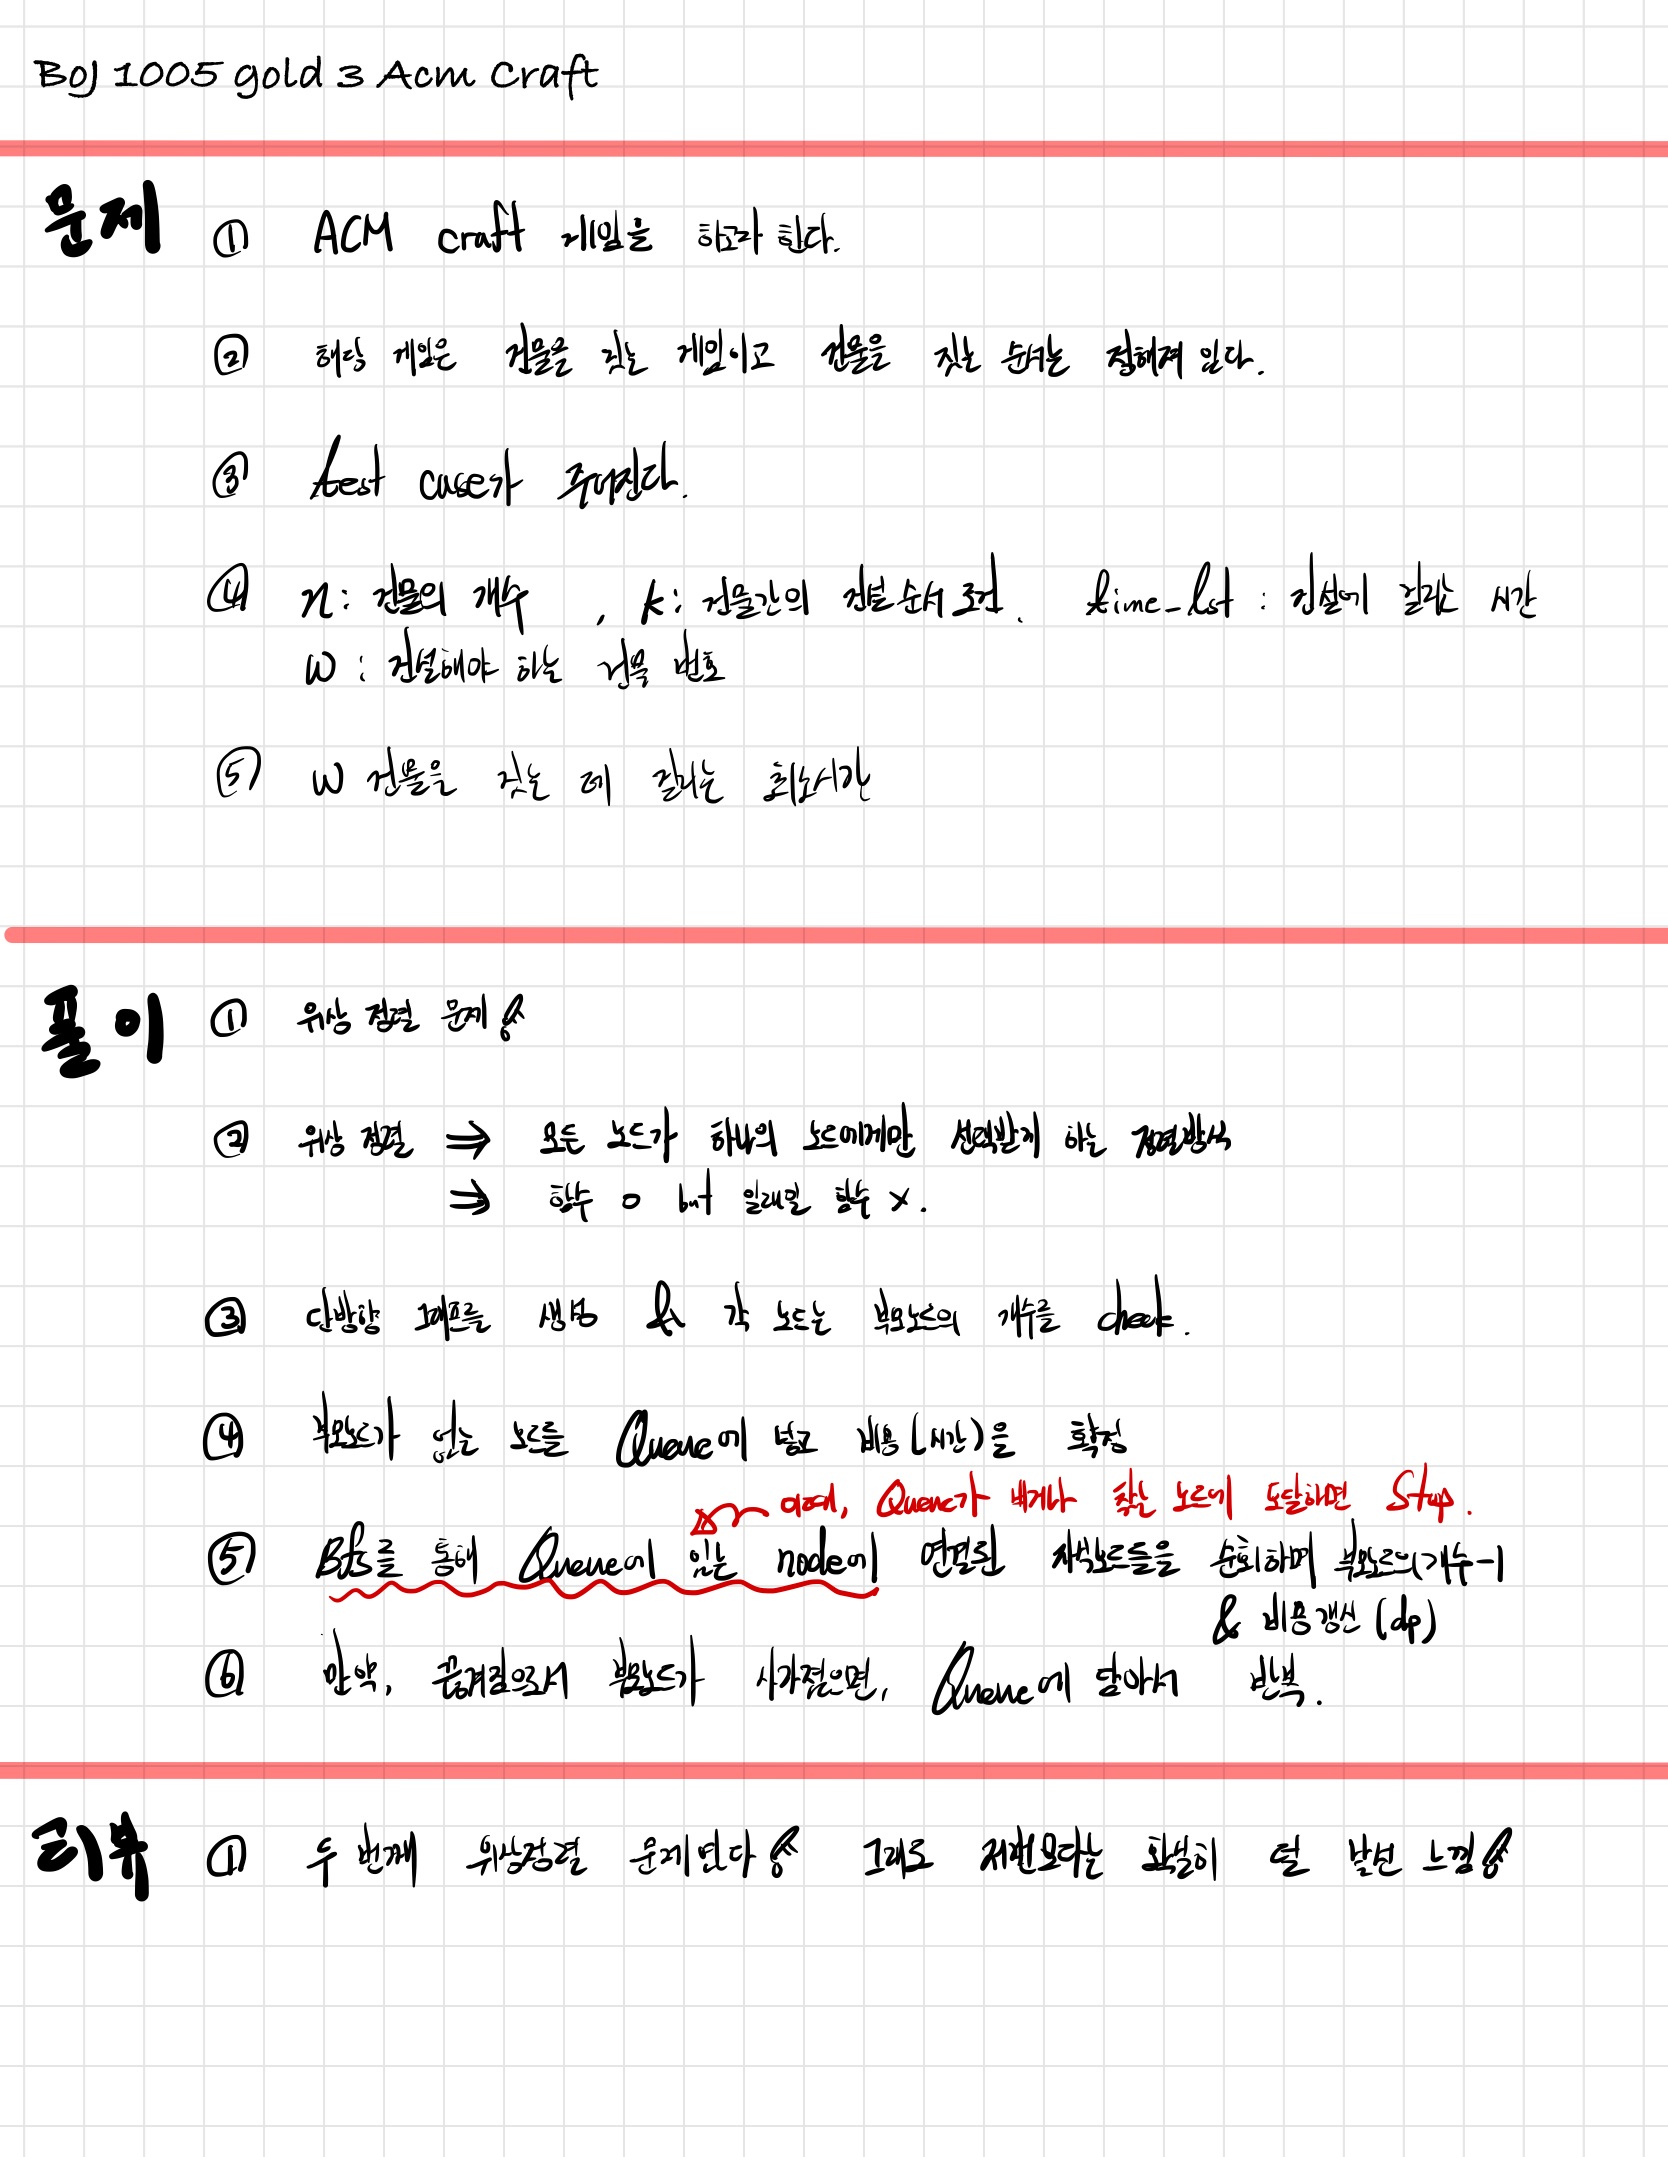 BOJ 1005 gold 3 Acm Craft
문제
① ACM craft 게임을 하고자 한다.
② 해당 게임은 건물을 짓는 게임이고 건물을 짓는 순서는 정해져 있다.
③ test case가 주어진다.
④ n : 건물의 개수 , k : 건물간의 건설순서 조건. time_lst : 건설에 걸리는 시간
W : 건설해야 하는 건물 번호
⑤ W 건물을 짓는 데 걸리는 최소시간
풀이
① 위상 정렬 문제
② 위상 정렬 ⇒ 모든 노드가 하나의 노드에게만 선택받게 하는 정렬방식
⇒ 함수 O but 일대일 함수 X.
③ 단방향 그래프를 생성 & 각 노드는 부모노드의 개수를 check.
④ 부모노드가 없는 노드를 Queue에 넣고 비용(시간)을 확정
이때, Queue가 비거나 찾는 노드에 도달하면 Stop.
⑤ Bfs를 통해 Queue에 있는 node에 연결된 자식노드들을 순회하며 부모노드의 개수-1
& 비용갱신 (dp)
⑥ 만약, 끊겨짐으로서 부모노드가 사라졌으면, Queue에 담아서 반복.
리뷰
① 두 번째 위상정렬 문제였다 그래도 저번보다는 확실히 덜 낯선 느낌